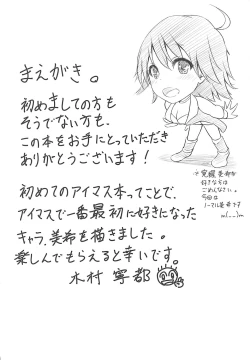 まえがき。
初めましての方も
そうでない方も、
この本をお手にとっていただき
ありがとうございます！
※覚醒美希が
好きな方は
ごめんなさい。
今回は
ノーマル美希です
m(__)m
初めてのアイマス本ってことで、
アイマスで一番最初に好きになった
キャラ、美希を描きました。
楽しんでもらえると幸いです。
木村寧都